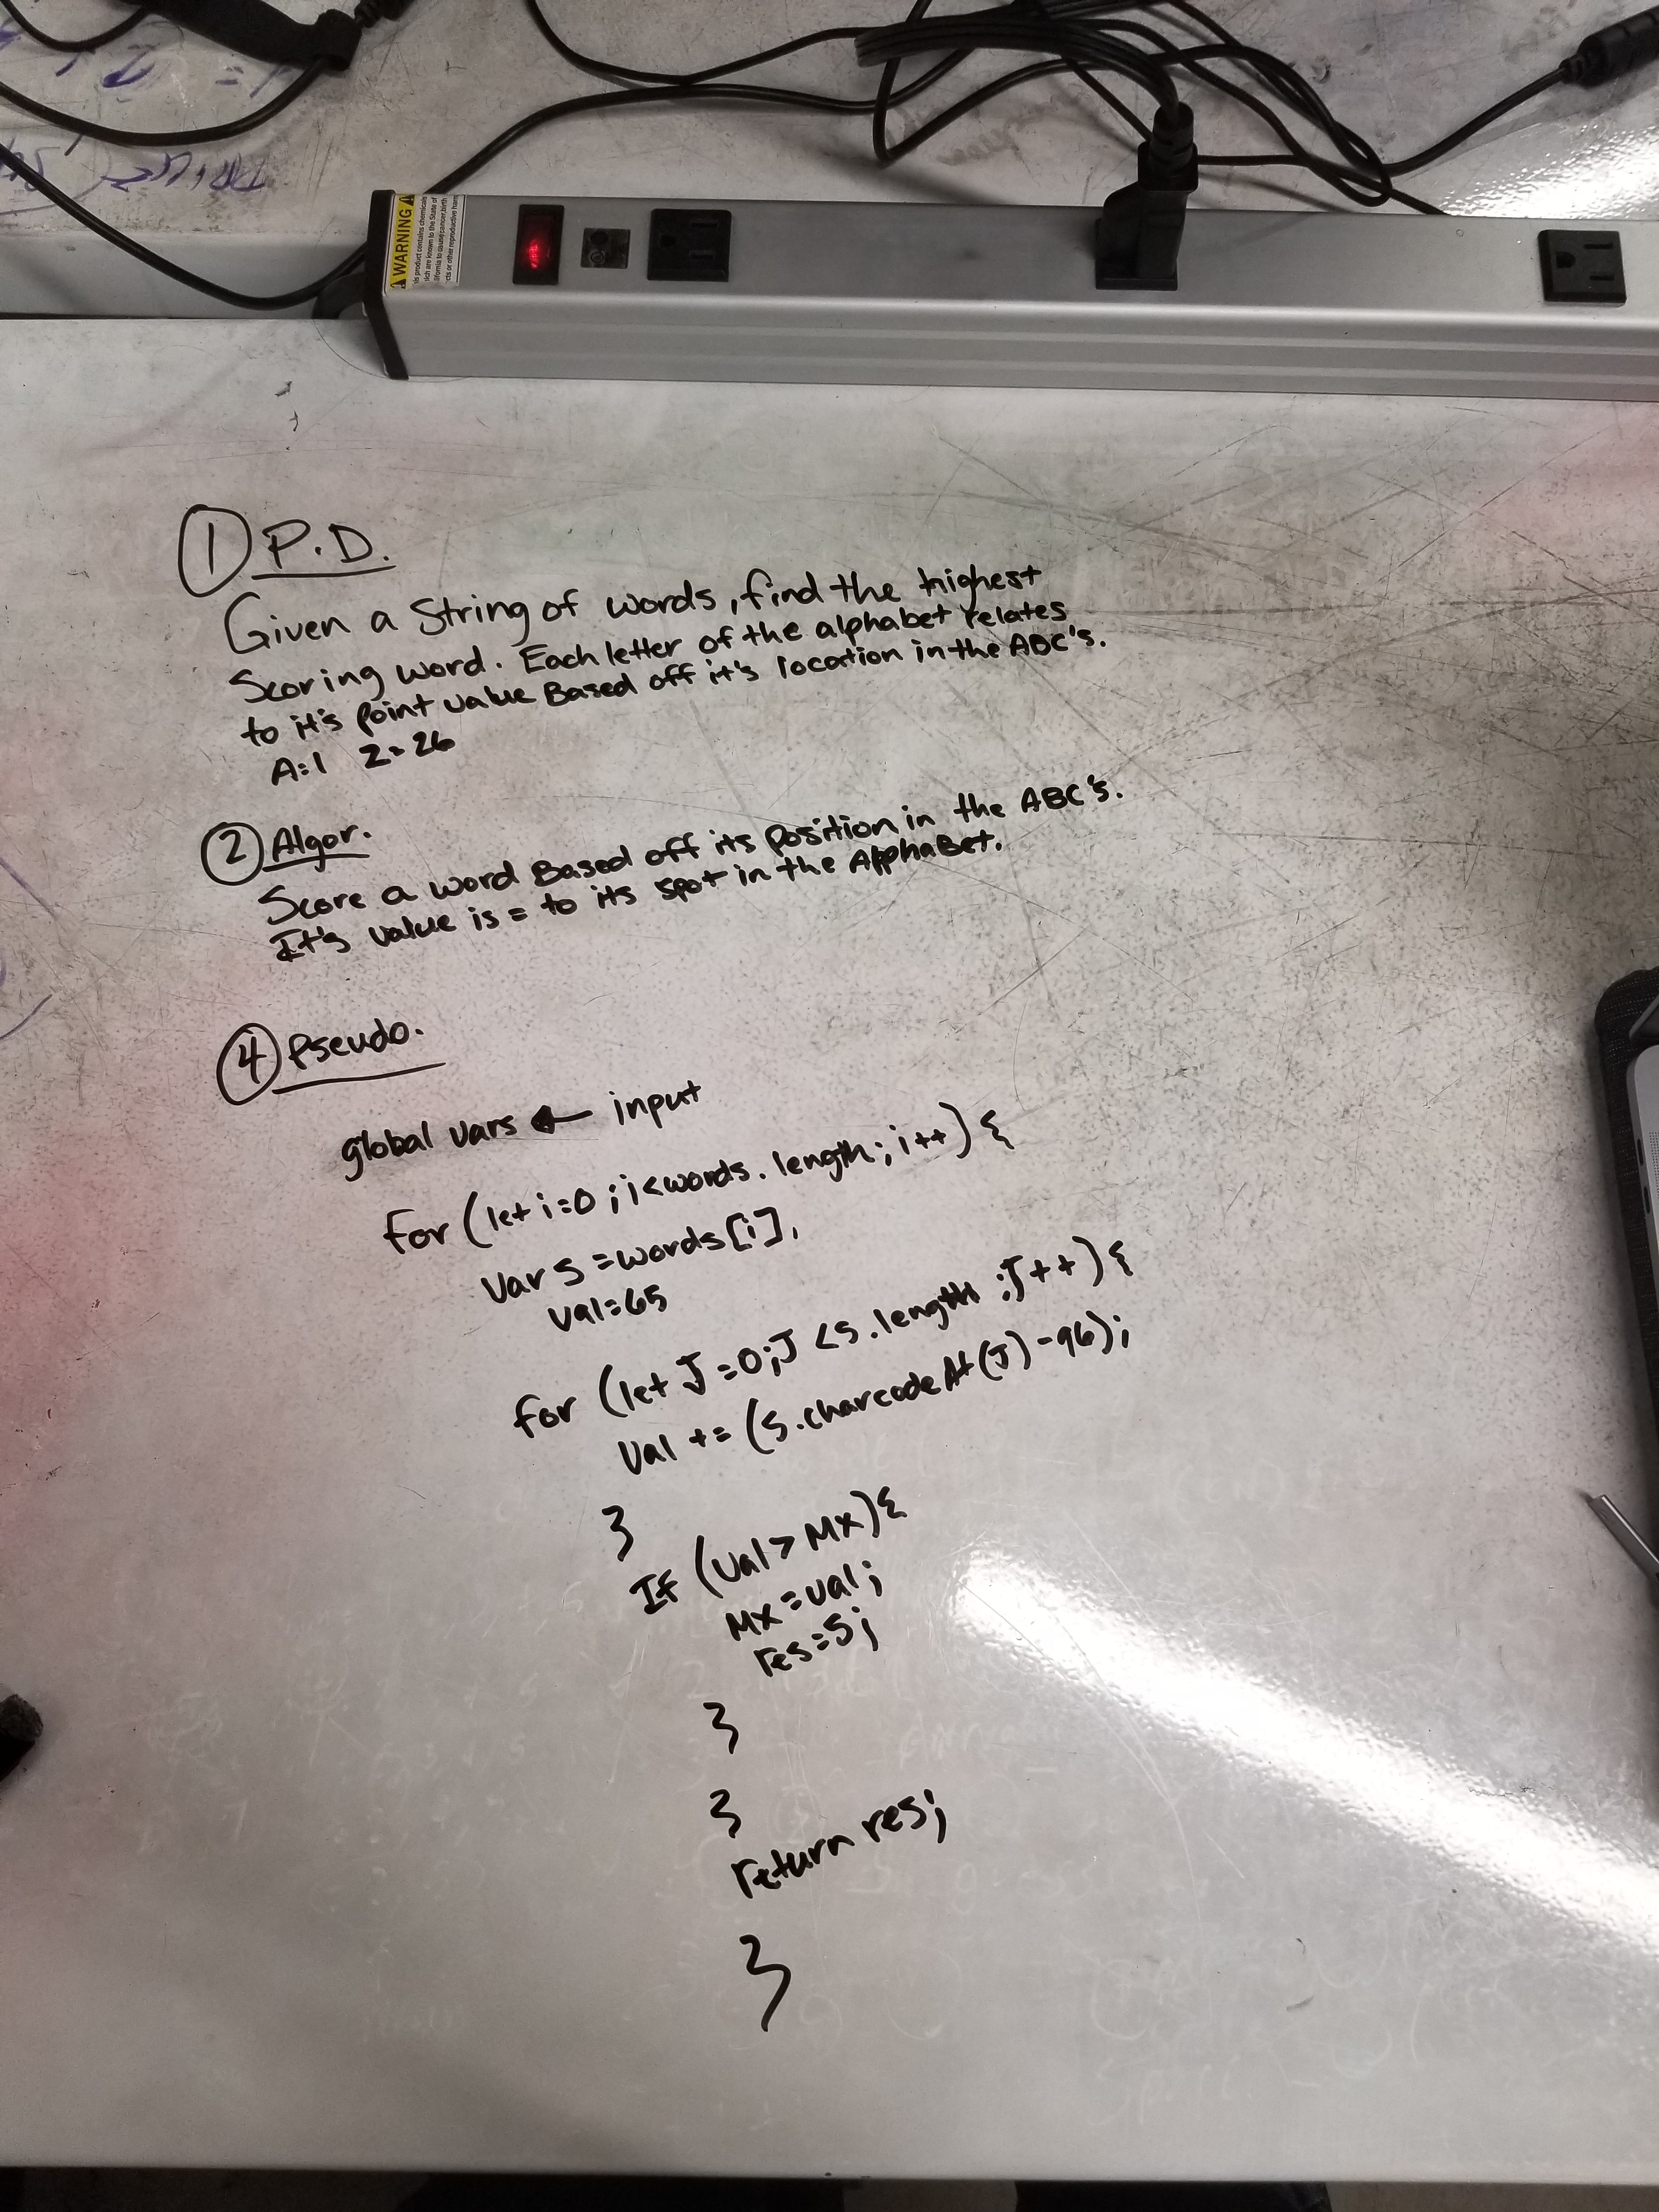 WARNING
① P.D.
Given a String of words, find the highest
Scoring word. Each letter of the alphabet relates
to it's point value Based off it's location in the ABC's.
A=1 Z=26
② Algor.
Score a word Based off its position in the ABC's.
It's value is = to its spot in the AlphaBet.
④ Pseudo.
global vars ← input
for (let i=0; i<words.length; i++) {
Var s=words[i],
val=65
for (let J=0; J<s.length; J++) {
Val += (s.charcodeAt(J)-96);
}
If (val > Mx) {
Mx=val;
res=s;
}
}
return res;
}